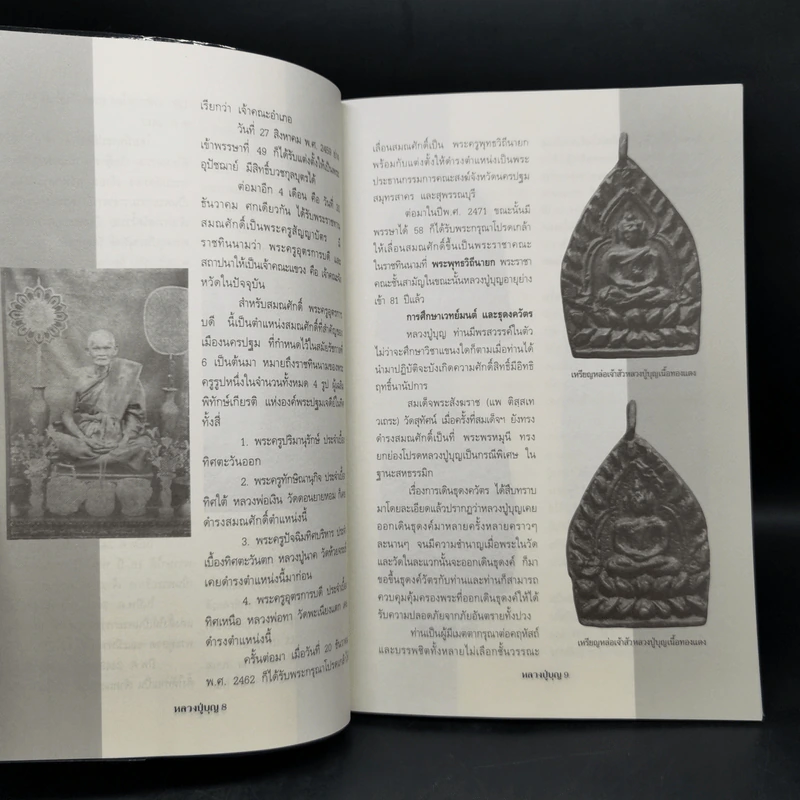 เรียกว่า เจ้าคณะอำเภอ
วันที่ 27 สิงหาคม พ.ศ. 2459
เข้าพรรษาที่ 49 ก็ได้รับแต่งตั้งให้เป็นพระ
อุปัชฌาย์ มีสิทธิ์บวชกุลบุตรได้
ต่อมาอีก 4 เดือน คือ วันที่ 30
ธันวาคม ศกเดียวกัน ได้รับพระราชทาน
สมณศักดิ์เป็นพระครูสัญญาบัตร มี
ราชทินนามว่า พระครูอุตรการบดี และ
สถาปนาให้เป็นเจ้าคณะแขวง คือ เจ้าคณะจัง
หวัดในปัจจุบัน
สำหรับสมณศักดิ์ พระครูอุตรการ
บดี นี้เป็นตำแหน่งสมณศักดิ์ที่สำคัญของ
เมืองนครปฐม ที่กำหนดไว้ในสมัยรัชกาลที่
6 เป็นต้นมา หมายถึงราชทินนามของพระ
ครูรูปหนึ่งในจำนวนทั้งหมด 4 รูป ผู้
พิทักษ์เกียรติ แห่งองค์พระปฐมเจดีย์
ทั้งสี่
1. พระครูปริมานุรักษ์ ประจำเบื้อง
ทิศตะวันออก
2. พระครูทักษิณานุกิจ ประจำเบื้อง
ทิศใต้ หลวงพ่อเงิน วัดดอนยายหอม ก็
ดำรงสมณศักดิ์ตำแหน่งนี้
3. พระครูปัจฉิมทิศบริหาร ประจำ
เบื้องทิศตะวันตก หลวงปู่นาค วัดห้วยจระเข้
เคยดำรงตำแหน่งนี้มาก่อน
4. พระครูอุตรการบดี ประจำเบื้อง
ทิศเหนือ หลวงพ่อทา วัดพะเนียงแตก
ดำรงตำแหน่งนี้
ครั้นต่อมา เมื่อวันที่ 20 ธันวาคม
พ.ศ. 2462 ก็ได้รับพระกรุณาโปรดเกล้าฯ
หลวงปู่บุญ 8
เลื่อนสมณศักดิ์เป็น พระครูพุทธวิถีนายก
พร้อมกับแต่งตั้งให้ดำรงตำแหน่งเป็นพระ
ประธานกรรมการคณะสงฆ์จังหวัดนครปฐม
สมุทรสาคร และสุพรรณบุรี
ต่อมาในปีพ.ศ. 2471 ขณะนั้นมี
พรรษาได้ 58 ก็ได้รับพระกรุณาโปรดเกล้า
ให้เลื่อนสมณศักดิ์ขึ้นเป็นพระราชาคณะ
ในราชทินนามที่ พระพุทธวิถีนายก พระราชา
คณะชั้นสามัญในขณะนั้นหลวงปู่บุญอายุย่าง
เข้า 81 ปีแล้ว
การศึกษาเวทย์มนต์ และธุดงควัตร
หลวงปู่บุญ ท่านมีพรสวรรค์ในตัว
ไม่ว่าจะศึกษาวิชาแขนงใดก็ตามเมื่อท่านได้
นำมาปฏิบัติจะบังเกิดความศักดิ์สิทธิ์มีอิทธิ
ฤทธิ์นานัปการ
สมเด็จพระสังฆราช (แพ ติสฺสเท
วเถระ) วัดสุทัศน์ เมื่อครั้งที่สมเด็จฯ ยังทรง
ดำรงสมณศักดิ์เป็นที่ พระพรหมุนี ทรง
ยกย่องโปรดหลวงปู่บุญเป็นกรณีพิเศษ ใน
ฐานะสหธรรมิก
เรื่องการเดินธุดงควัตร ได้สืบทราบ
มาโดยละเอียดแล้วปรากฏว่าหลวงปู่บุญเคย
ออกเดินธุดงค์มาหลายครั้งหลายคราวๆ
ละนานๆ จนมีความชำนาญเมื่อพระในวัด
และวัดในละแวกนั้นจะออกเดินธุดงค์ ก็มา
ขอขึ้นธุดงค์วัตรกับท่านและท่านก็สามารถ
ควบคุมคุ้มครองพระที่ออกเดินธุดงค์ให้ได้
รับความปลอดภัยจากภัยอันตรายทั้งปวง
ท่านเป็นผู้มีเมตตากรุณาต่อคฤหัสถ์
และบรรพชิตทั้งหลายไม่เลือกชั้นวรรณะ
เหรียญหล่อเจ้าสัวหลวงปู่บุญเนื้อทองแดง
เหรียญหล่อเจ้าสัวหลวงปู่บุญเนื้อทองแดง
หลวงปู่บุญ 9